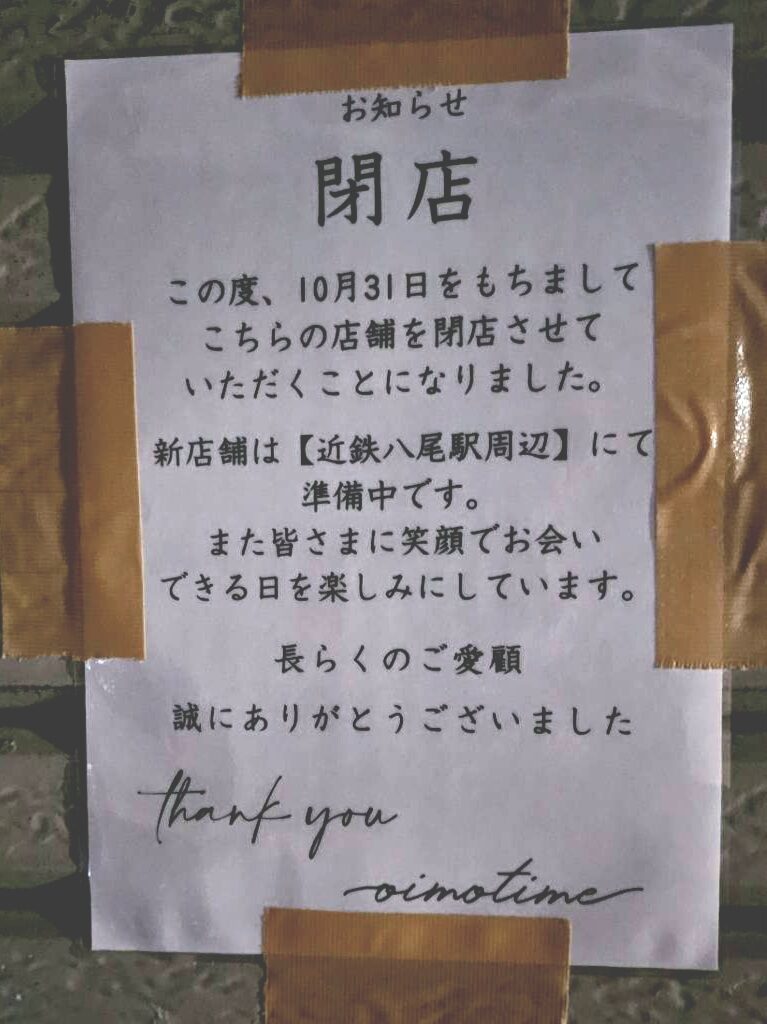 お知らせ
閉店
この度、10月31日をもちまして
こちらの店舗を閉店させて
いただくことになりました。
新店舗は【近鉄八尾駅周辺】にて
準備中です。
また皆さまに笑顔でお会い
できる日を楽しみにしています。
長らくのご愛顧
誠にありがとうございました
thank you
oimotime